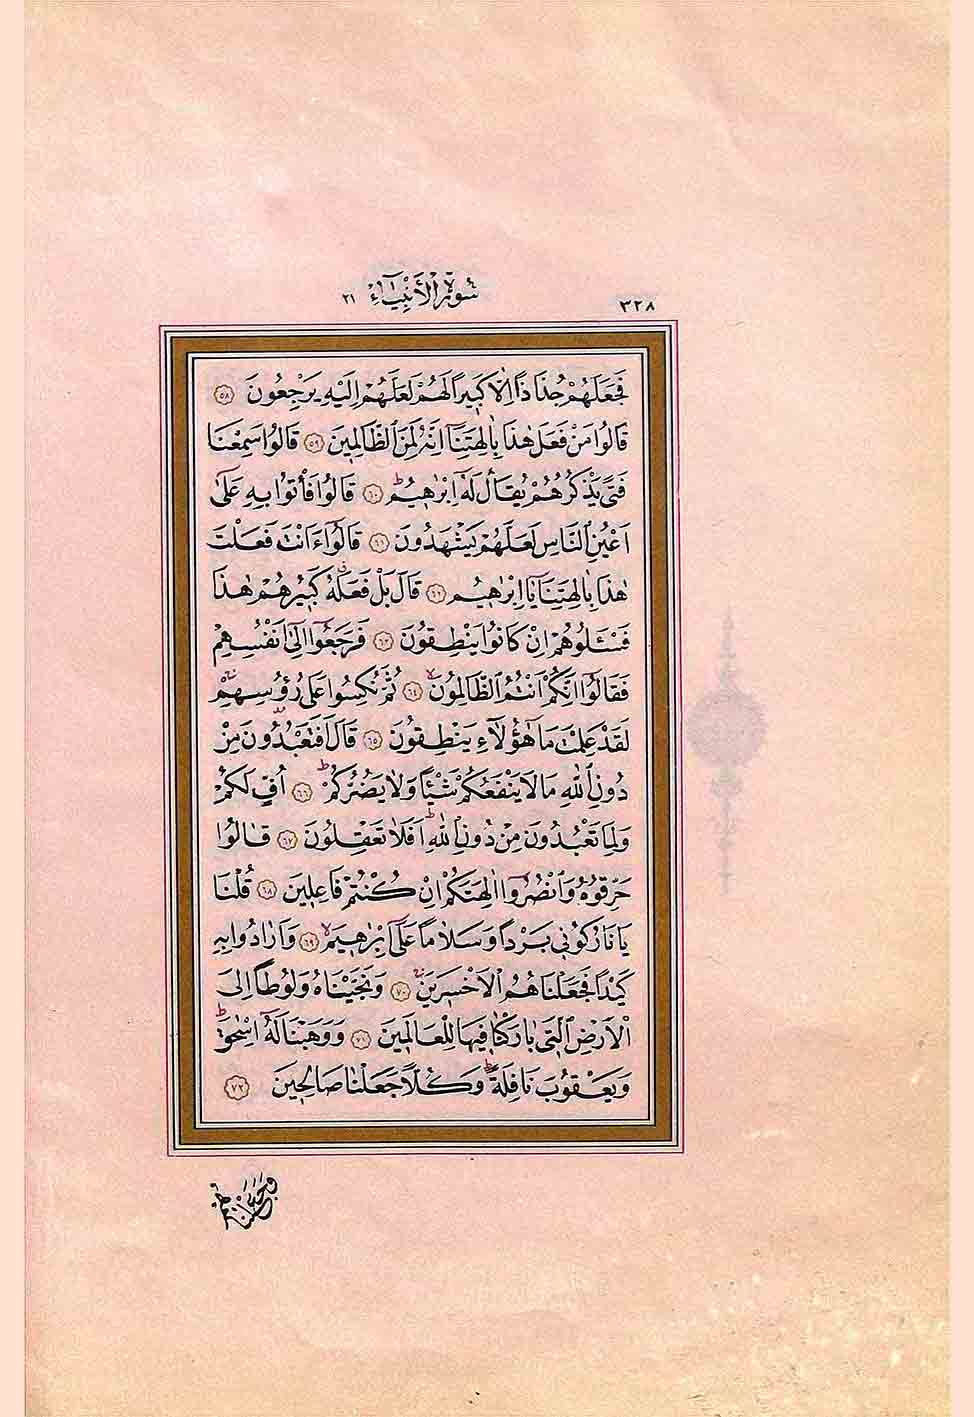 ٣٢٨ سُورَةُ الْأَنْبِيَاءِ ٢١
فَجَعَلَهُمْ جُذَاذًا اِلَّا كَبِيرًا لَهُمْ لَعَلَّهُمْ اِلَيْهِ يَرْجِعُونَ ﴿٥٨﴾
قَالُوا مَنْ فَعَلَ هٰذَا بِاٰلِهَتِنَٓا اِنَّهُ لَمِنَ الظَّالِمِينَ ﴿٥٩﴾ قَالُوا سَمِعْنَا
فَتًى يَذْكُرُهُمْ يُقَالُ لَهُٓ اِبْرٰهِيمُ ۜ ﴿٦٠﴾ قَالُوا فَأْتُوا بِهِ عَلٰٓى
اَعْيُنِ النَّاسِ لَعَلَّهُمْ يَشْهَدُونَ ﴿٦١﴾ قَالُٓوا ءَاَنْتَ فَعَلْتَ
هٰذَا بِاٰلِهَتِنَا يَٓا اِبْرٰهِيمُ ﴿٦٢﴾ قَالَ بَلْ فَعَلَهُ كَبِيرُهُمْ هٰذَا
فَسْـَٔلُوهُمْ اِنْ كَانُوا يَنْطِقُونَ ﴿٦٣﴾ فَرَجَعُٓوا اِلٰٓى اَنْفُسِهِمْ
فَقَالُٓوا اِنَّكُمْ اَنْتُمُ الظَّالِمُونَ ﴿٦٤﴾ ثُمَّ نُكِسُوا عَلٰى رُؤُسِهِمْ
لَقَدْ عَلِمْتَ مَا هٰٓؤُلَٓاءِ يَنْطِقُونَ ﴿٦٥﴾ قَالَ اَفَتَعْبُدُونَ مِنْ
دُونِ اللّٰهِ مَا لَا يَنْفَعُكُمْ شَيْـًٔا وَلَا يَضُرُّكُمْ ۜ ﴿٦٦﴾ اُفٍّ لَكُمْ
وَلِمَا تَعْبُدُونَ مِنْ دُونِ اللّٰهِ ۜ اَفَلَا تَعْقِلُونَ ﴿٦٧﴾ قَالُوا
حَرِّقُوهُ وَانْصُرُٓوا اٰلِهَتَكُمْ اِنْ كُنْتُمْ فَاعِلِينَ ﴿٦٨﴾ قُلْنَا
يَا نَارُ كُونِي بَرْدًا وَسَلَامًا عَلٰٓى اِبْرٰهِيمَ ۙ ﴿٦٩﴾ وَاَرَادُوا بِهِ
كَيْدًا فَجَعَلْنَاهُمُ الْاَخْسَرِينَ ﴿٧٠﴾ وَنَجَّيْنَاهُ وَلُوطًا اِلَى
الْاَرْضِ الَّتِي بَارَكْنَا فِيهَا لِلْعَالَمِينَ ﴿٧١﴾ وَوَهَبْنَا لَهُٓ اِسْحٰقَ ۜ
وَيَعْقُوبَ نَافِلَةً ۜ وَكُلًّا جَعَلْنَا صَالِحِينَ ﴿٧٢﴾
وَجَعَلْنَاهُمْ